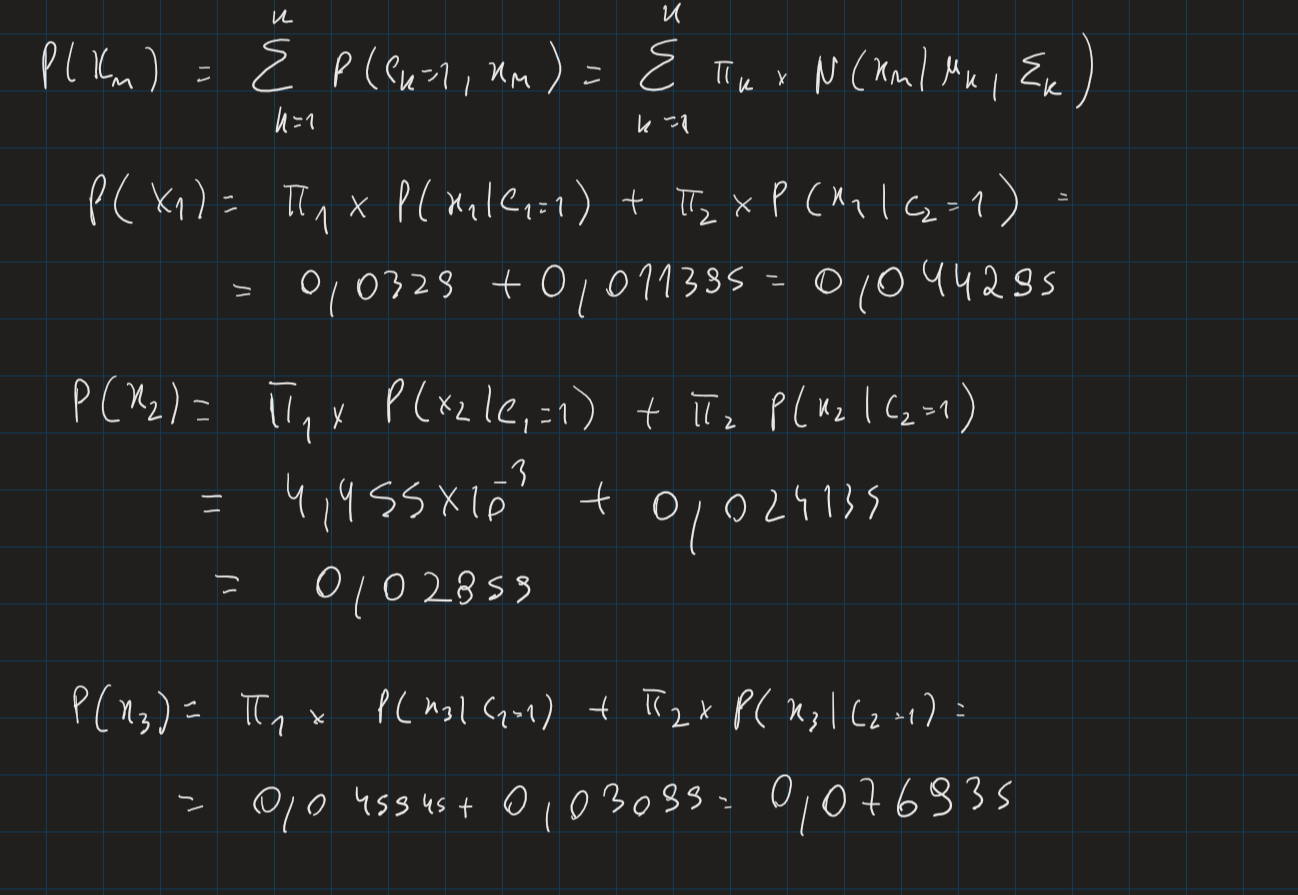 P(x_m) = ∑_{k=1}^{K} P(c_k=1, x_m) = ∑_{k=1}^{K} π_k × N(x_m | μ_k, Σ_k)
P(x_1) = π_1 × P(x_1 | c_1=1) + π_2 × P(x_1 | c_2=1) =
= 0,0329 + 0,011395 = 0,044295
P(x_2) = π_1 × P(x_2 | c_1=1) + π_2 P(x_2 | c_2=1)
= 4,455×10^{-3} + 0,024135
= 0,02859
P(x_3) = π_1 × P(x_3 | c_1=1) + π_2 × P(x_3 | c_2=1) =
= 0,045945 + 0,03099 = 0,076935